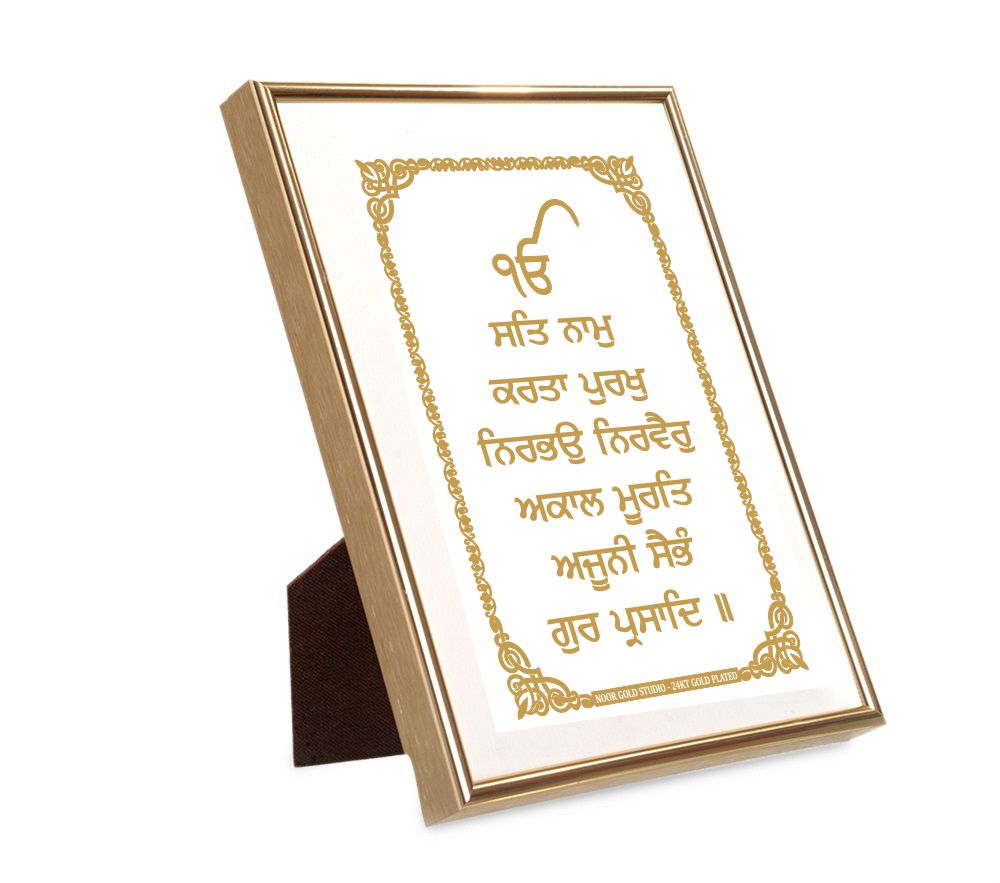 ੴ
ਸਤਿ ਨਾਮੁ
ਕਰਤਾ ਪੁਰਖੁ
ਨਿਰਭਉ ਨਿਰਵੈਰੁ
ਅਕਾਲ ਮੂਰਤਿ
ਅਜੂਨੀ ਸੈਭੰ
ਗੁਰ ਪ੍ਰਸਾਦਿ ॥
NOOR GOLD STUDIO - 24KT GOLD PLATED